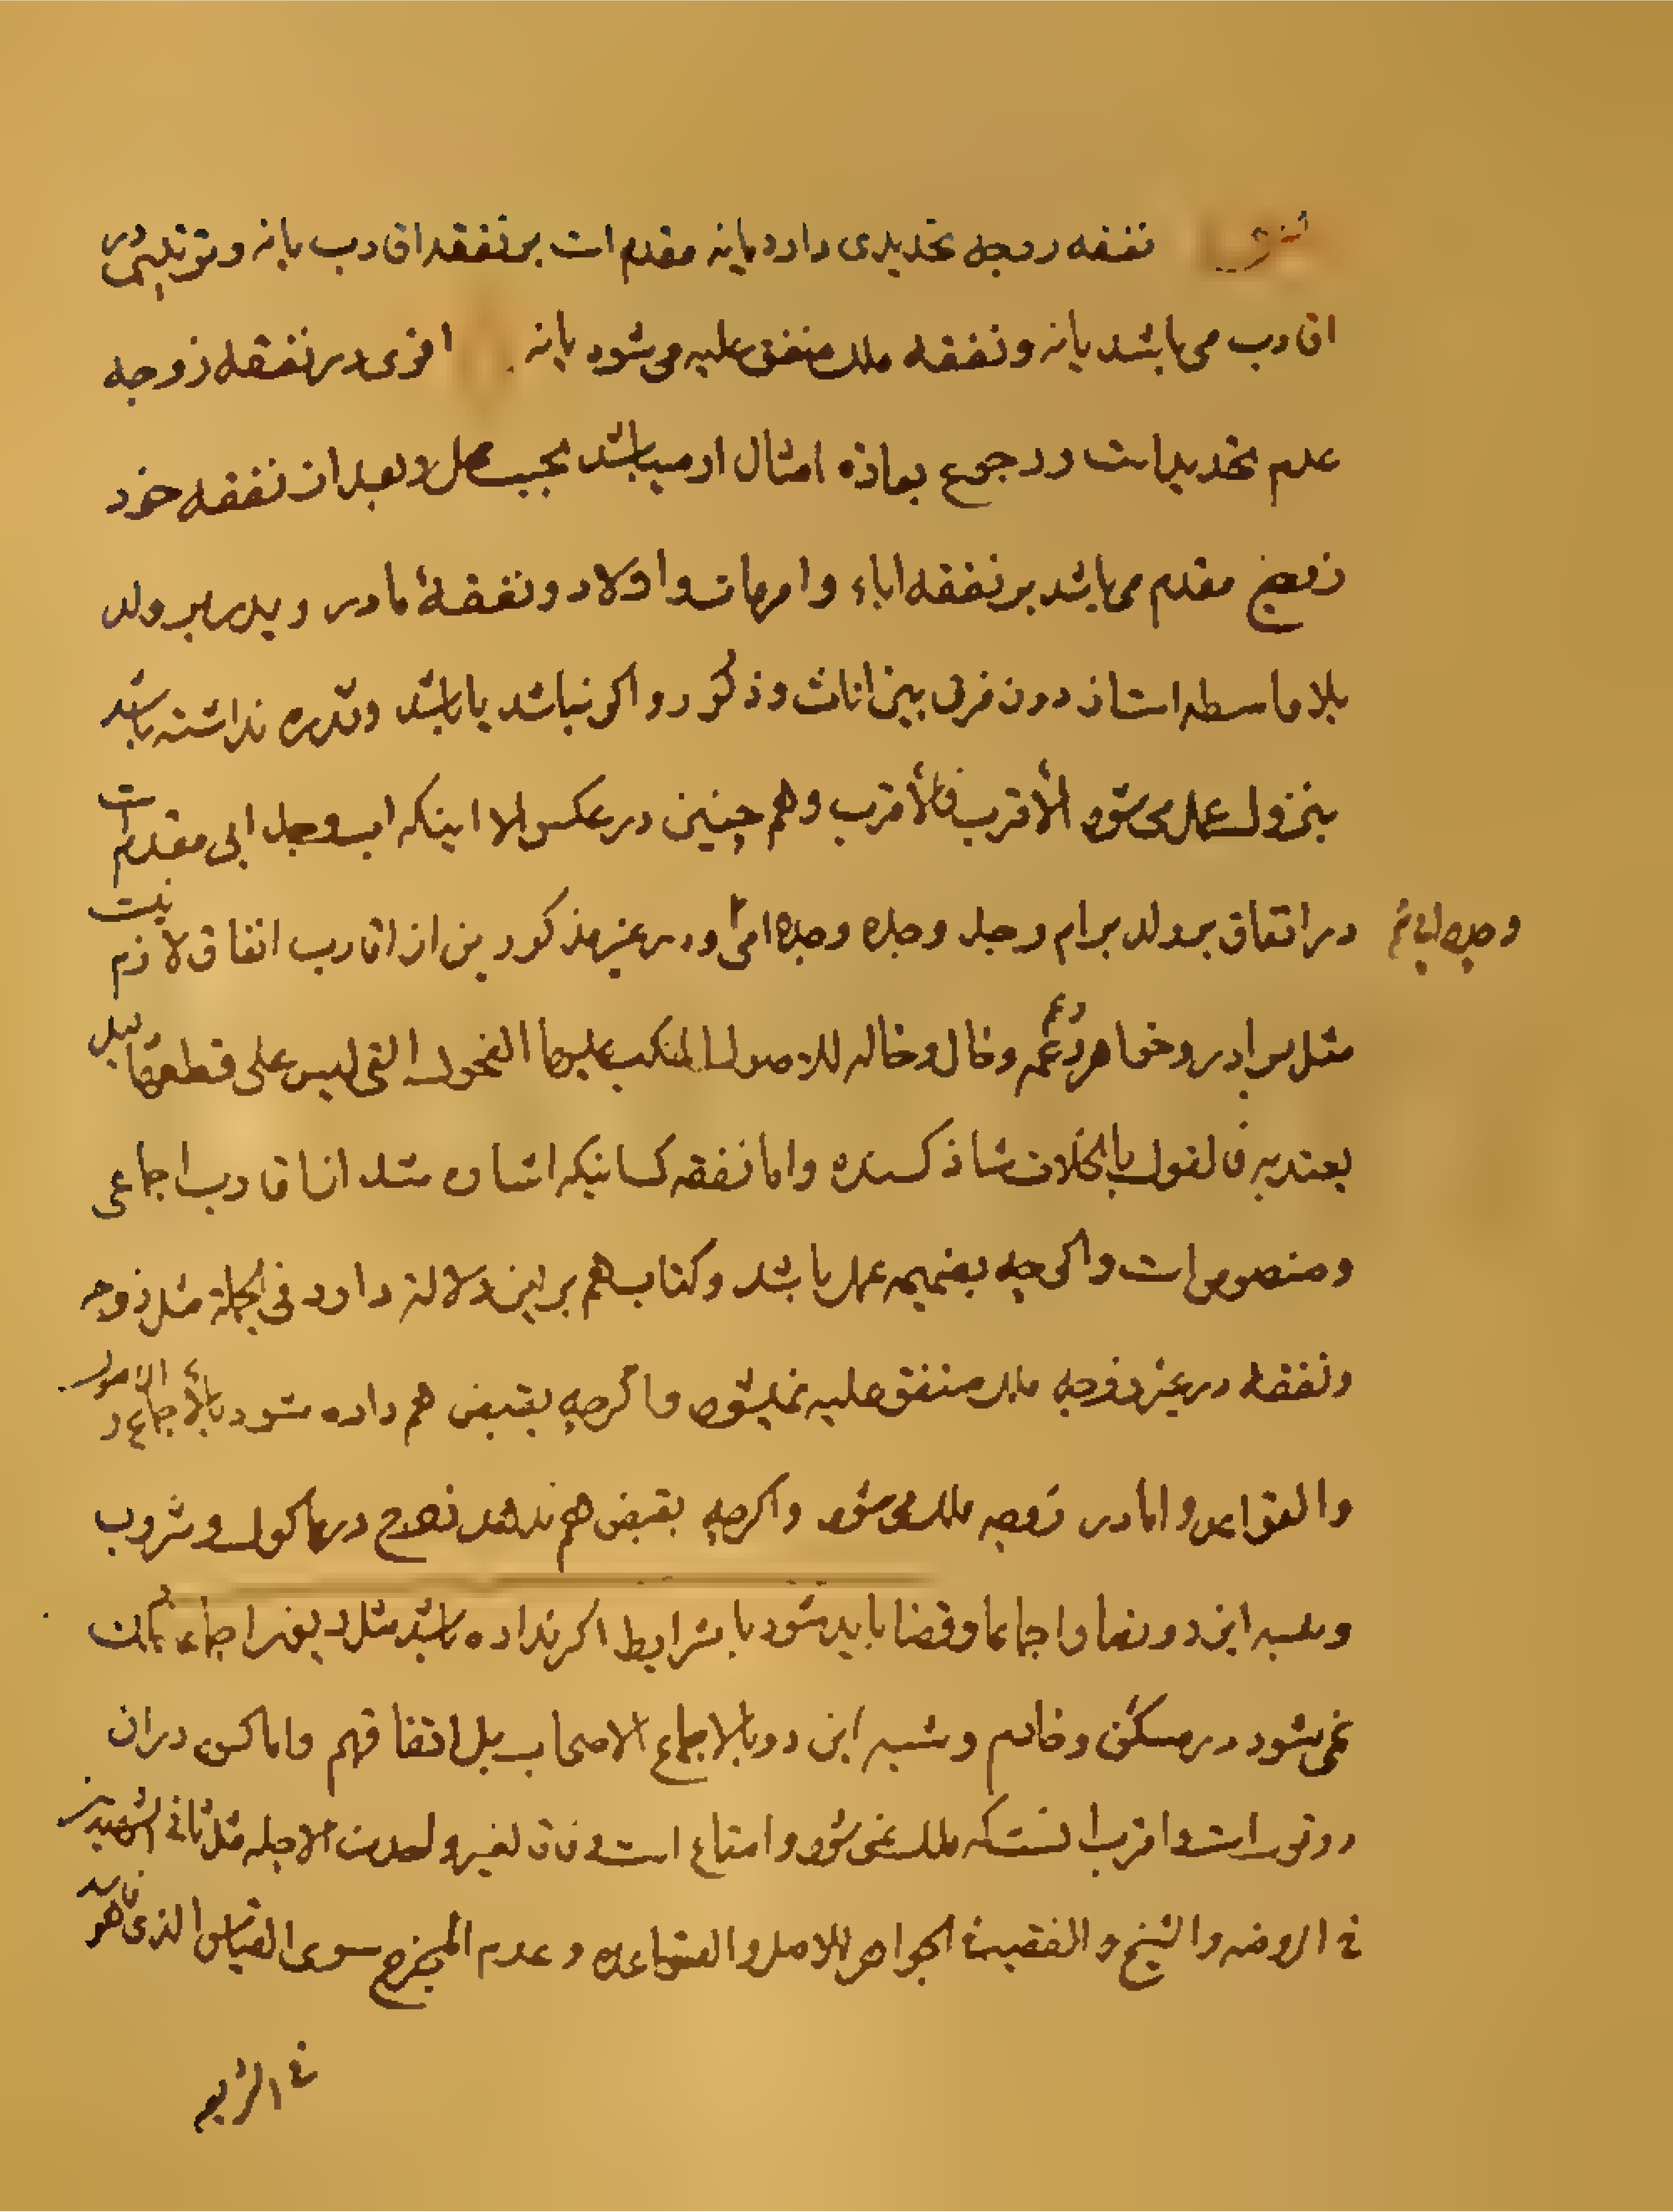 نفقه زوجه تحدیدی دارد یا نه مقدم است بر نفقه اقارب یا نه و ترتیبی در
اقارب می باشد یا نه و نفقه ملک منفق علیه می شود یا نه اقوی در نفقه زوجه
عدم تحدید است و رجوع بعاده امثال او میباشد بحسب محل و بعد از نفقه خود
زوج مقدم می باشد بر نفقه اباء و امهات و اولاد و نفقهٔ مادر و پدر بر ولد
بلا واسطه است دون فرق بین اناث و ذکور و اگر نباشد یا باشد و قدره نداشته باشد
بنزول عمل می شود الأقرب فالأقرب و هم چنین در عکس الا اینکه اب و جد ابی مقدم است
وجده ابی در انفاق بر ولد بر ام و جد و جده و جده امی و در غیر مذکورین از اقارب انفاق لازم نیست
مثل برادر و خواهر و عم و عمه و خال و خاله للاصول المنکب علیها الفحول التی لیس علی قطعها دلیل
یعتد به فالقول بالخلاف شاذ و اما نفقه کسانیکه اشاره شد از اقارب اجماعی
و منصوص است و اگر چه بضمیمه عمل باشد و کتاب هم بر این دلالة دارد فی الجملة مثل زوجه
و نفقه در غیر زوجه ملک منفق علیه نمیشود و اگر چه بقبض هم داده شود بالأجماع و الاصول
و القواعد و اما در زوجه ملک می شود و اگر چه بقبض هم ندهد زوج در ماکول و مشروب
و شبه این دو نصا و اجماعا و قضا باید شود با شرایط اگر نداده باشد مثل دیون اجماعا تملک
نمی شود در مسکن و خادم و شبه این دو بالاجماع الاصحاب بل اتفاقهم و اما کسوه در ان
دو قول است و اقرب انستکه ملک نمی شود و امتاع است وفاقا لغیر واحد من الاجله مثل ثانی الشهیدین
فی الروضه و الشیخ و الفقیه فی الجواهر للاصل و القاعده و عدم المخرج سوی القیاس الذی هو فاسد